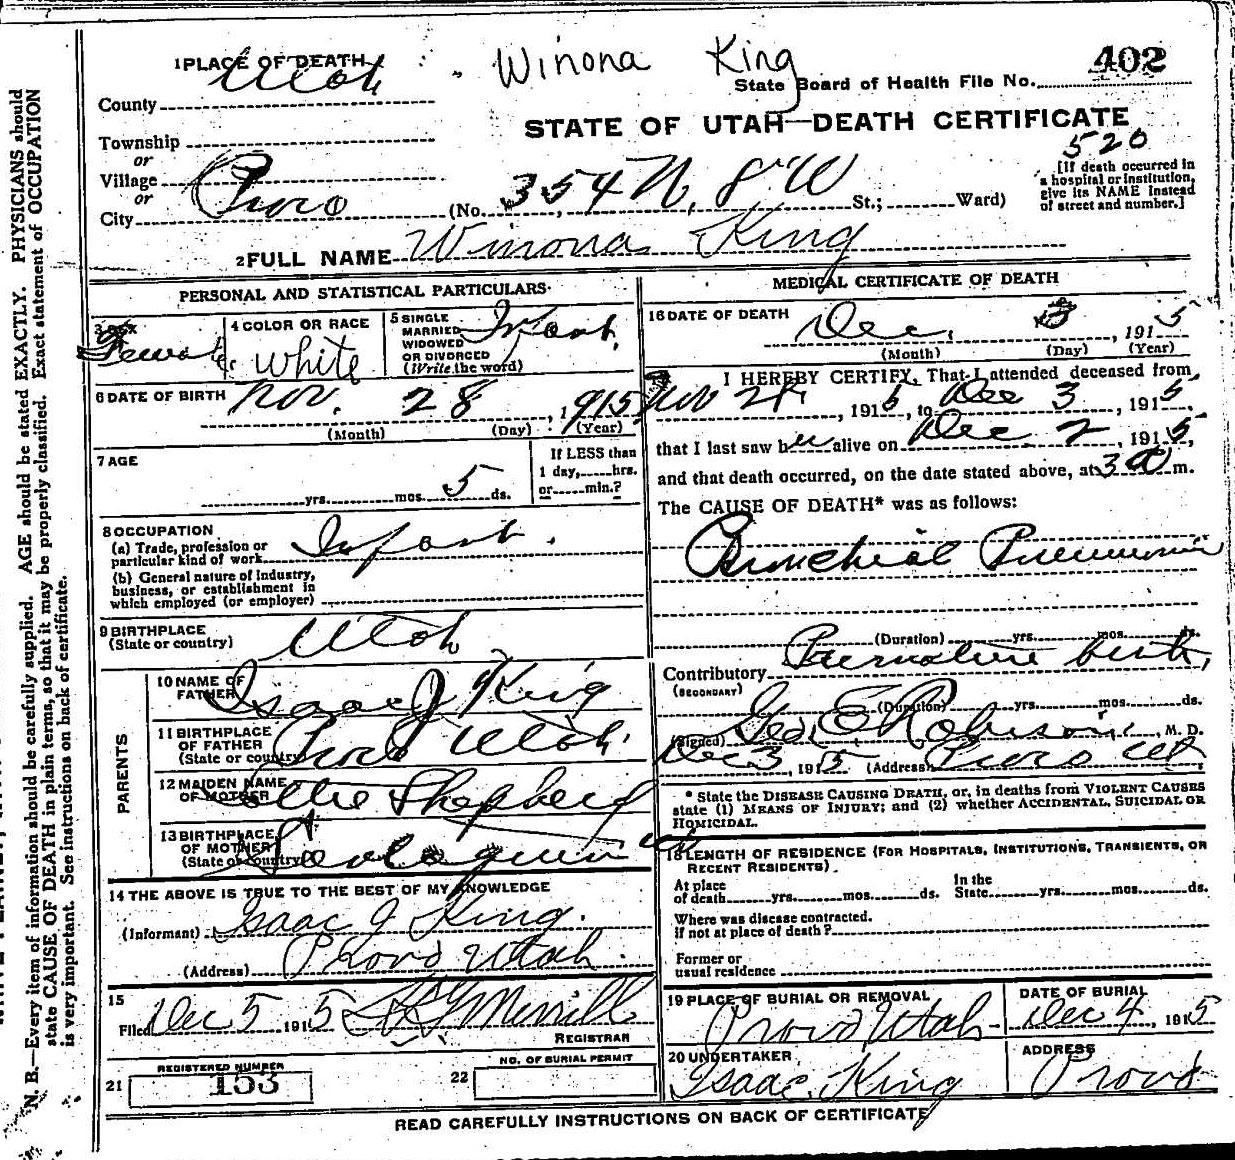 1 PLACE OF DEATH Winona King 402
County Utah State Board of Health File No.
STATE OF UTAH—DEATH CERTIFICATE
Township
or
Village
or
City Provo (No. 354 N. 8 W St.; Ward)
520
[If death occurred in
a hospital or institution,
give its NAME instead
of street and number.]
2 FULL NAME Winona King
PERSONAL AND STATISTICAL PARTICULARS
3 SEX Female
4 COLOR OR RACE White
5 SINGLE
MARRIED
WIDOWED
OR DIVORCED
(Write the word)
Infant.
6 DATE OF BIRTH Nov. 28, 1915
(Month) (Day) (Year)
7 AGE
yrs. mos. 5 ds.
If LESS than
1 day, hrs.
or min.?
8 OCCUPATION
(a) Trade, profession or
particular kind of work Infant.
(b) General nature of industry,
business, or establishment in
which employed (or employer)
9 BIRTHPLACE
(State or country) Utah
PARENTS
10 NAME OF
FATHER Isaac J King
11 BIRTHPLACE
OF FATHER
(State or country) Provo Utah.
12 MAIDEN NAME
OF MOTHER Shepherd
13 BIRTHPLACE
OF MOTHER
(State or country)
14 THE ABOVE IS TRUE TO THE BEST OF MY KNOWLEDGE
(Informant) Isaac J King.
(Address) Provo Utah.
15
Filed Dec 5, 1915 Merrill
REGISTRAR
REGISTERED NUMBER
21 153
NO. OF BURIAL PERMIT
22
MEDICAL CERTIFICATE OF DEATH
16 DATE OF DEATH
Dec. 3, 1915
(Month) (Day) (Year)
I HEREBY CERTIFY, That I attended deceased from
Nov 28, 1915, to Dec 3, 1915,
that I last saw her alive on Dec. 2, 1915,
and that death occurred, on the date stated above, at 3 a m.
The CAUSE OF DEATH* was as follows:
Bronchial Pneumonia
(Duration) yrs. mos. ds.
Contributory Premature birth,
(SECONDARY)
(Duration) yrs. mos. ds.
(Signed) Geo. E Robison, M. D.
Dec 3, 1915 (Address) Provo Ut
* State the DISEASE CAUSING DEATH, or, in deaths from VIOLENT CAUSES
state (1) MEANS OF INJURY; and (2) whether ACCIDENTAL, SUICIDAL OR
HOMICIDAL.
18 LENGTH OF RESIDENCE (FOR HOSPITALS, INSTITUTIONS, TRANSIENTS, OR
RECENT RESIDENTS).
At place
of death yrs. mos. ds.
In the
State yrs. mos. ds.
Where was disease contracted.
if not at place of death?
Former or
usual residence
19 PLACE OF BURIAL OR REMOVAL
Provo Utah
DATE OF BURIAL
Dec 4, 1915
20 UNDERTAKER
Isaac King
ADDRESS
Provo
READ CAREFULLY INSTRUCTIONS ON BACK OF CERTIFICATE
N. B.—Every item of information should be carefully supplied. AGE should be stated EXACTLY. PHYSICIANS should
state CAUSE OF DEATH in plain terms, so that it may be properly classified. Exact statement of OCCUPATION
is very important. See instructions on back of certificate.